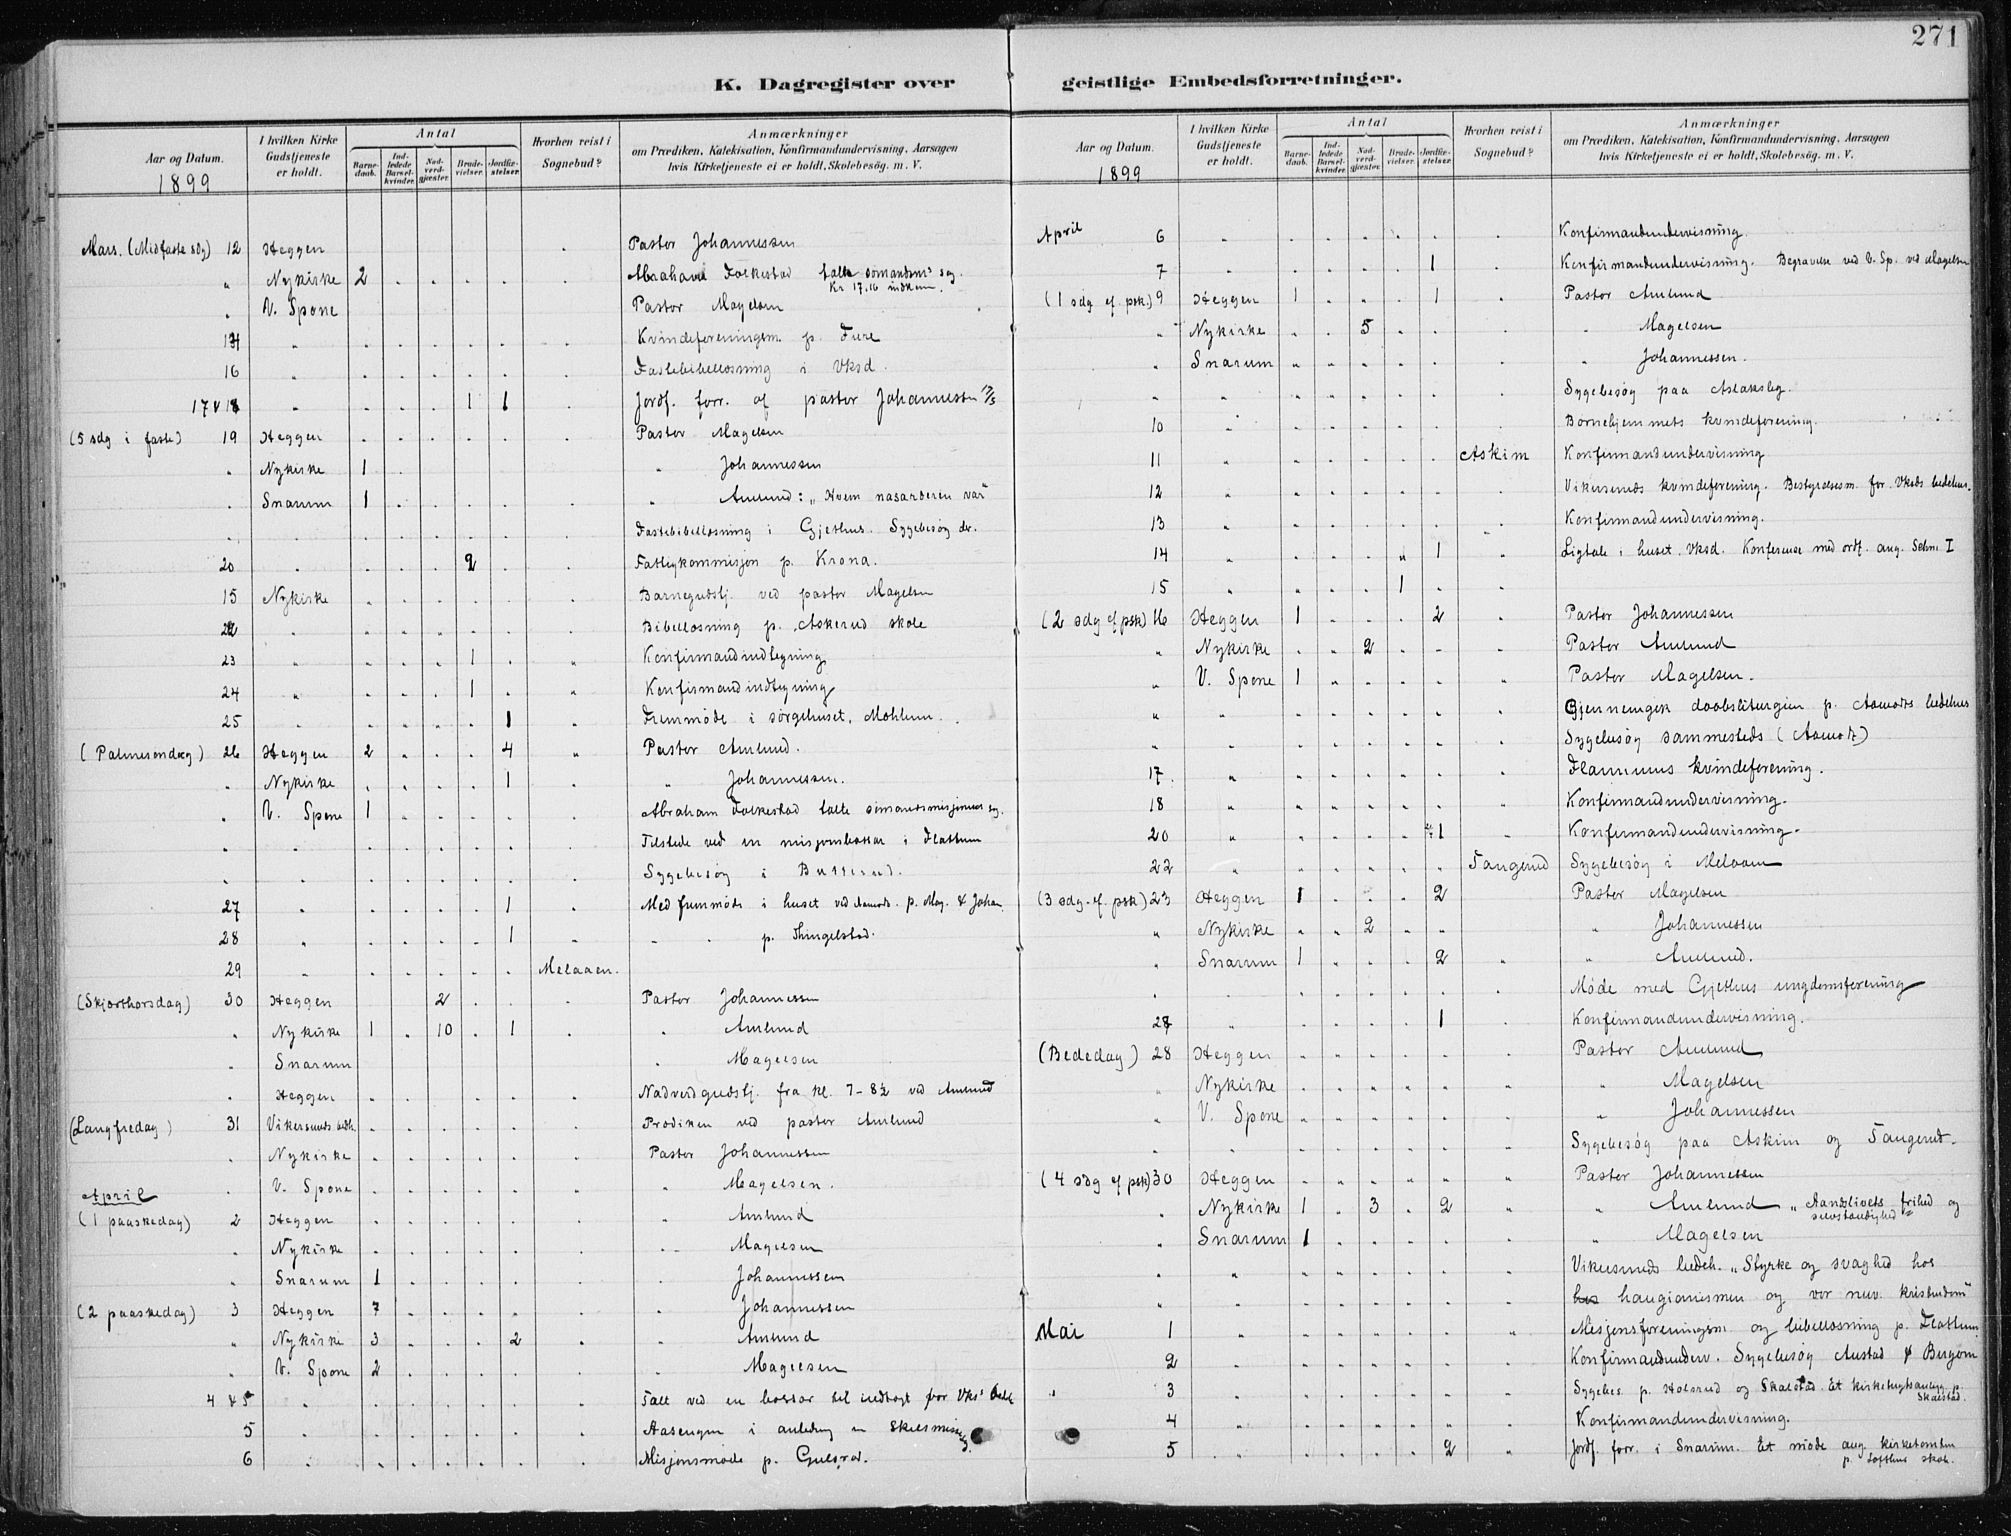 271
K. Dagregister over geistlige Embedsforretninger.
Aar og Datum. I hvilken Kirke Gudstjeneste er holdt. Antal Barnedaab. Indledede Barselkvinder. Nadverdgjæster. Brudevielser. Jordfæstelser. Hvorhen reist i Sognebud? Anmærkninger om Prædiken, Katekisation, Konfirmandundervisning, Aarsagen hvis Kirketjeneste ei er holdt, Skolebesög. m. V.
1899
Mars. (Midfaste sdg) 12 Heggen Pastor Johannessen
" Nykirke 2 Abraham Folkestad talte sömandsm's sag.
Kr 17.16 indkom.
" V. Spone Pastor Magelsen
14 " Kvindeforeningsm. p. Fure
16 " Fastebibellæsning i Vksd.
17 & 18 " 1 1 Jordf. forr. af pastor Johannessen 17/3
(5 sdg i faste) 19 Heggen Pastor Magelsen
" Nykirke 1 " Johannessen
" Snarum 1 " Amlund: "Hvem nasaræeren var"
" Fastebibellæsning i Gjethus. Sygebesøg dr.
20 " 2 Fattigkommisjon p. Krona.
15 Nykirke Barnegudstj. ved pastor Magelsen
22 " Bibellæsning p. Askerud skole
23 " 1 Konfirmandindtegning
24 " 1 Konfirmandindtegning
25 " 1 Fremmøde i sørgehuset, Mohlum.
(Palmesøndag) 26 Heggen 2 4 Pastor Amlund.
" Nykirke 1 " Johannessen.
" V. Spone 1 Abraham Folkestad talte sömandsmisjonens sag.
" Tilstede ved en misjonsbassar i Flattum
" Sygebesøg i Busserud.
27 " 1 Med fremmöde i huset ved Aamods. p. Mag. & Johan.
28 " 1 " " p. Thingelstad.
29 " Melaaen.
(Skjærthorsdag) 30 Heggen 2 Pastor Johannessen
" Nykirke 1 10 1 " Amlund
" Snarum " Magelsen
" Heggen Nadverdgudstj. fra kl. 7-8½ ved Amlund
(Langfredag) 31 Vikersunds bedh. Prædiken ved pastor Amlund
" Nykirke Pastor Johannessen
" V. Spone " Magelsen.
April
(1 paaskedag) 2 Heggen " Amlund
" Nykirke " Magelsen
" Snarum 1 " Johannessen
(2 paaskedag) 3 Heggen 7 " Johannessen
" Nykirke 3 2 " Amlund
" V. Spone 2 " Magelsen
4 & 5 " Talt ved en bassar til indtægt for Vks'
5 " Aasengen i anledng
6 " Misjonsmöde p. Gulsrod.
Aar og Datum. I hvilken Kirke Gudstjeneste er holdt. Antal Barnedaab. Indledede Barselkvinder. Nadverdgjæster. Brudevielser. Jordfæstelser. Hvorhen reist i Sognebud? Anmærkninger om Prædiken, Katekisation, Konfirmandundervisning, Aarsagen hvis Kirketjeneste ei er holdt, Skolebesög. m. V.
1899
April 6 " Konfirmandundervisning.
7 " 1 Konfirmandundervisning. Begravelse ved V. Sp. ved Magelsen
(1 sdg ef. psk.) 9 Heggen 1 1 Pastor Amlund
" Nykirke 5 " Magelsen
" Snarum " Johannessen.
" Sygebesøg paa Aslaksby.
10 " Børnehjemmets kvindeforening.
11 " Askim Konfirmandundervisning
12 " Vikersunds kvindeforening. Bestyrelsesm. for Vksds bedehus.
13 " Konfirmandundervisning.
14 " 1 Ligtale i huset Vksd. Konferense med ordf. ang. I
15 " 1
(2 sdg ef psk) 16 Heggen 1 2 Pastor Johannessen
" Nykirke 2 Pastor Amlund
" V. Spone 1 Pastor Magelsen.
" Gjennemgik daabsliturgien p. Aamods bedehus
" Sygebesøg sammesteds (Aamodt)
17. " kvindeforening.
18 " Konfirmandundervisning.
20 " 1 Konfirmandundervisning.
22 " Tangerud Sygebesøg i Melaaen
(3 sdg. ef. psk) 23 Heggen 1 2 Pastor Magelsen
" Nykirke 2 " Johannessen
" Snarum 1 2 " Amlund.
" Møde med Gjethus ungdomsforening
27 " 1 Konfirmandundervisning.
(Bededag) 28 Heggen Pastor Amlund
" Nykirke " Magelsen
" V. Spone " Johannessen
" Sygebesøg paa Askim og Tangerud.
(4 sdg ef psk) 30 Heggen Pastor Johannessen
" Nykirke 1 3 2 " Amlund "Aandslivets frihed og
selvstændighed"
" Snarum 1 " Magelsen
" Vikersunds bedeh. "Styrke og svaghed hos
" hos haugianismen og vor nuv. kristendom"
Mai 1 " Misjonsforeningsm. og bibellæsning p. Flattum
2 " Konfirmandunderv. Sygebesøg Austad & Bergom
" 3 " Sygebes. p. Holsrud og Skalstad. Et p.
Skalstad.
4 " Konfirmandundervisning.
5 " 2 Jordf. forr. i Snarum. Et möde ang. kirketomten
p. Lofthus skole.